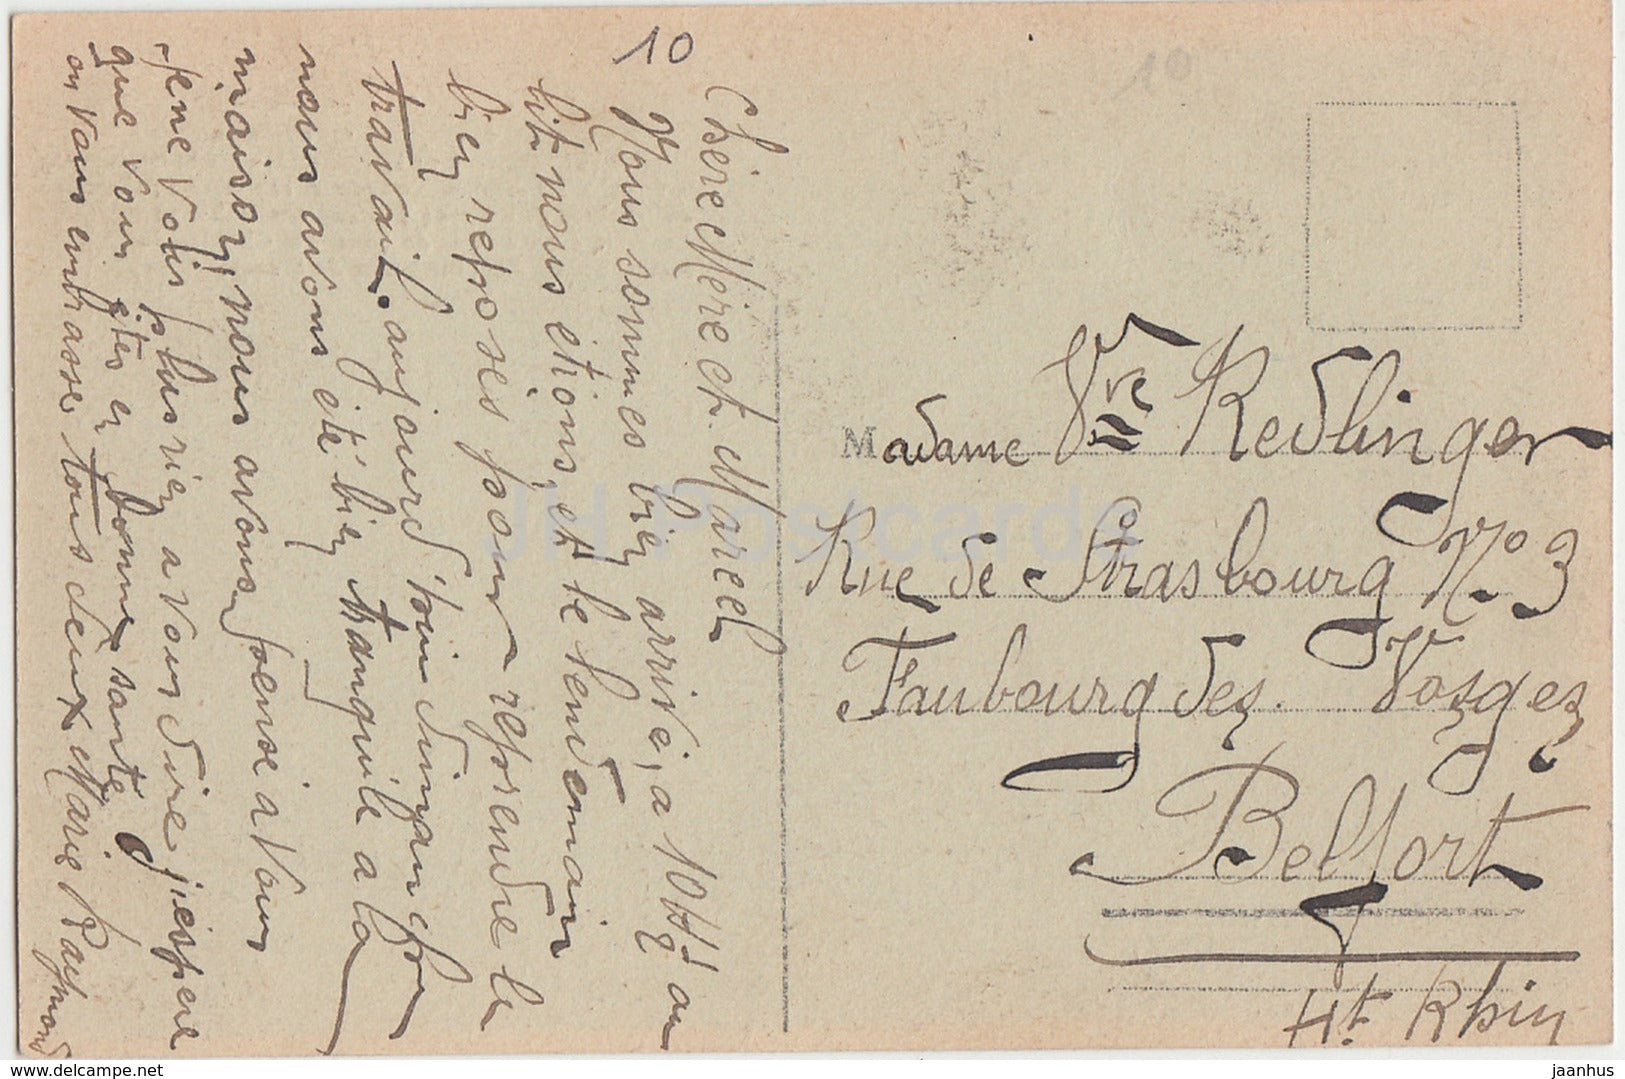 10
Chère Mère et Marcel
Nous sommes bien arrivé, a 10H½ au
lit nous étions, et le lendemain
bien reposés pour reprendre le
travail. aujourd'hui dimanche
nous avons été bien tranquile a la
maison, nous avons pensé a vous
Je ne vois plus rien a vous dire j'espere
que vous êtes en bonne santé
on vous embrasse tous deux Marie Raymond
Madame Vve Redlinger
Rue de Strasbourg No 3
Faubourg des Vosges
Belfort
Ht Rhin
JH Postcards
www.delcampe.net
jaanhus